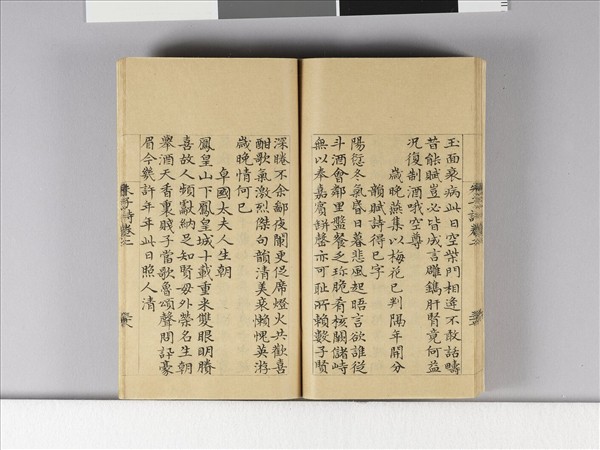 玉面衰病此日空柴門相逢不敢話疇
昔能賦豈必皆成言雕鐫肝腎竟何益
况復制酒哦空尊
歲晚燕集以梅花已判隔年開分
韻賦詩得已字
陽愆冬氣昏日暮悲風起晤言欲誰從
斗酒會鄰里盤餐乏珍脆肴核關儲峙
無以奉嘉賓缾罄亦可耻所賴數子賢
深勝不余鄙夜闌更促席燈火共歡喜
酣歌氣激烈傑句韻清美衰懶愧英游
歲晚情何已
卓國太夫人生朝
鳳皇山下鳳皇城十載重来雙眼明賸
喜故人頻辭納足知賢母外榮名生朝
舉酒天香裏賤子當歌魯頌聲問訊豪
眉今幾許年年此日照人清
朱子詩卷二